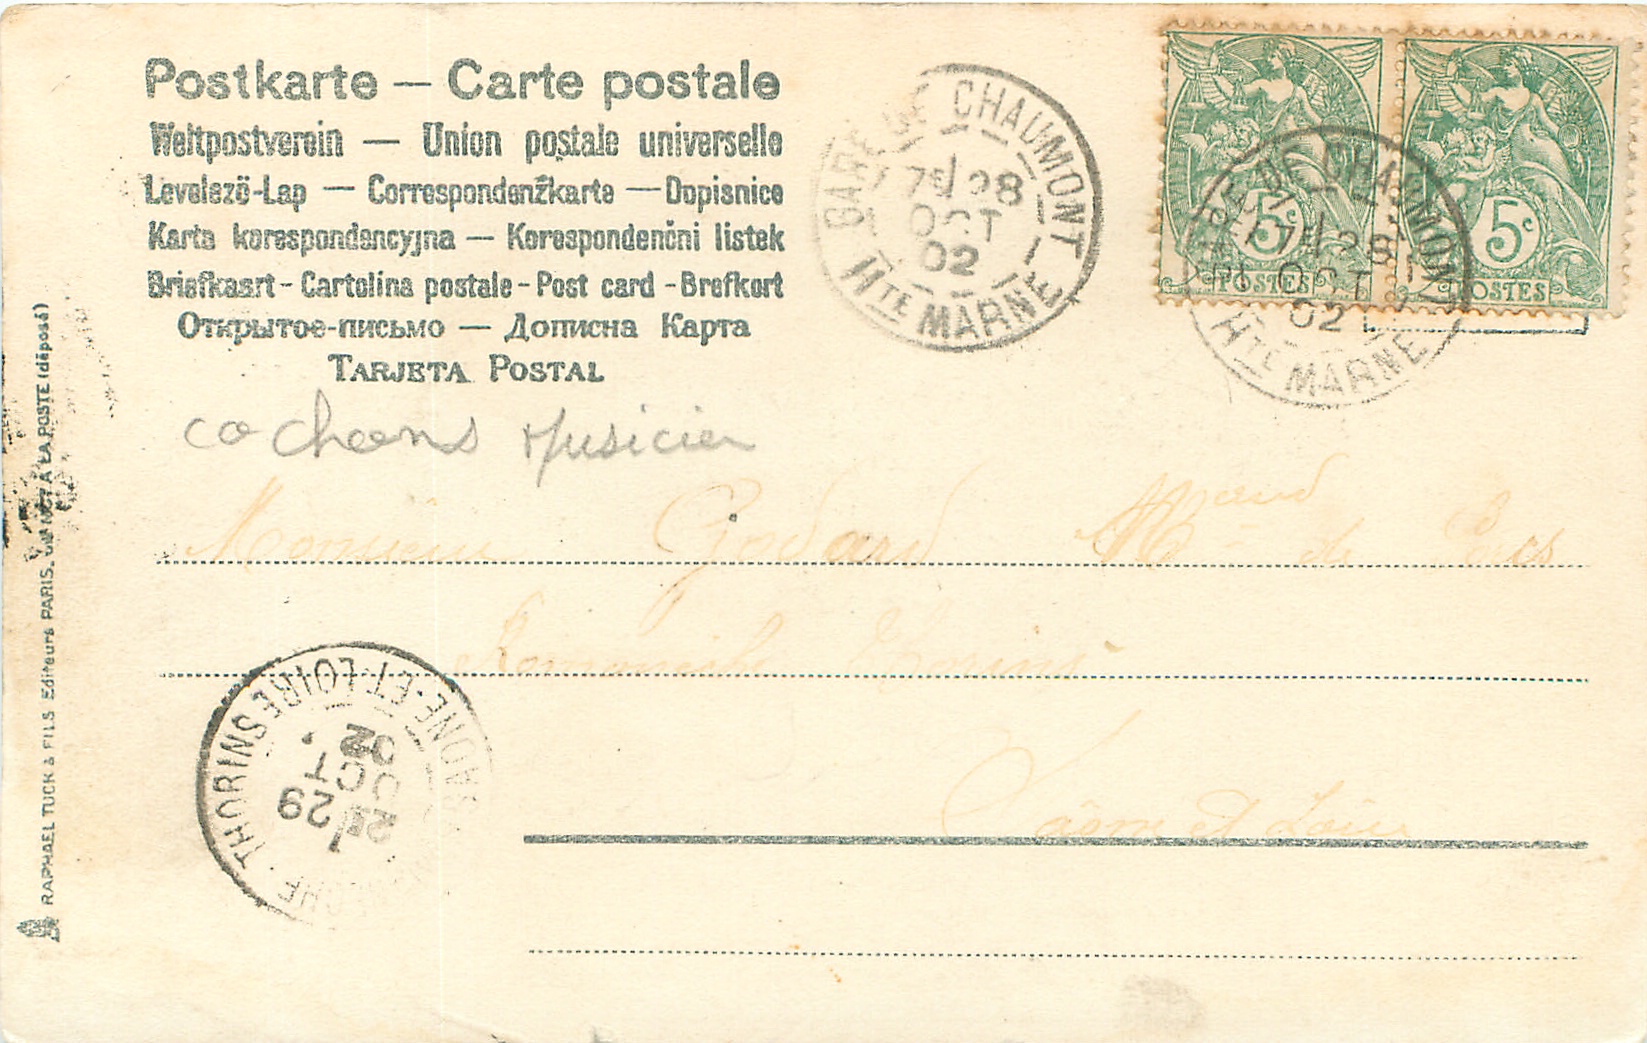 Postkarte — Carte postale
Weltpostverein — Union postale universelle
Levelező-Lap — Correspondenzkarte — Dopisnice
Karta korespondencyjna — Korespondenčni listek
Briefkaart - Cartolina postale - Post card - Brefkort
Открытое-письмо — Дописна Карта
TARJETA POSTAL
cochons Musicien
GARE DE CHAUMONT
7E 28
OCT
02
HTE MARNE
5c 5c
POSTES POSTES
GARE DE CHAUMONT
7E 28
OCT
02
HTE MARNE
Monsieur Godard Md de
Romanèche Thorins
Saône et Loire
THORINS SAONE-ET-LOIRE
29
OCT
02
RAPHAEL TUCK & FILS Editeurs PARIS. A LA POSTE (déposé)